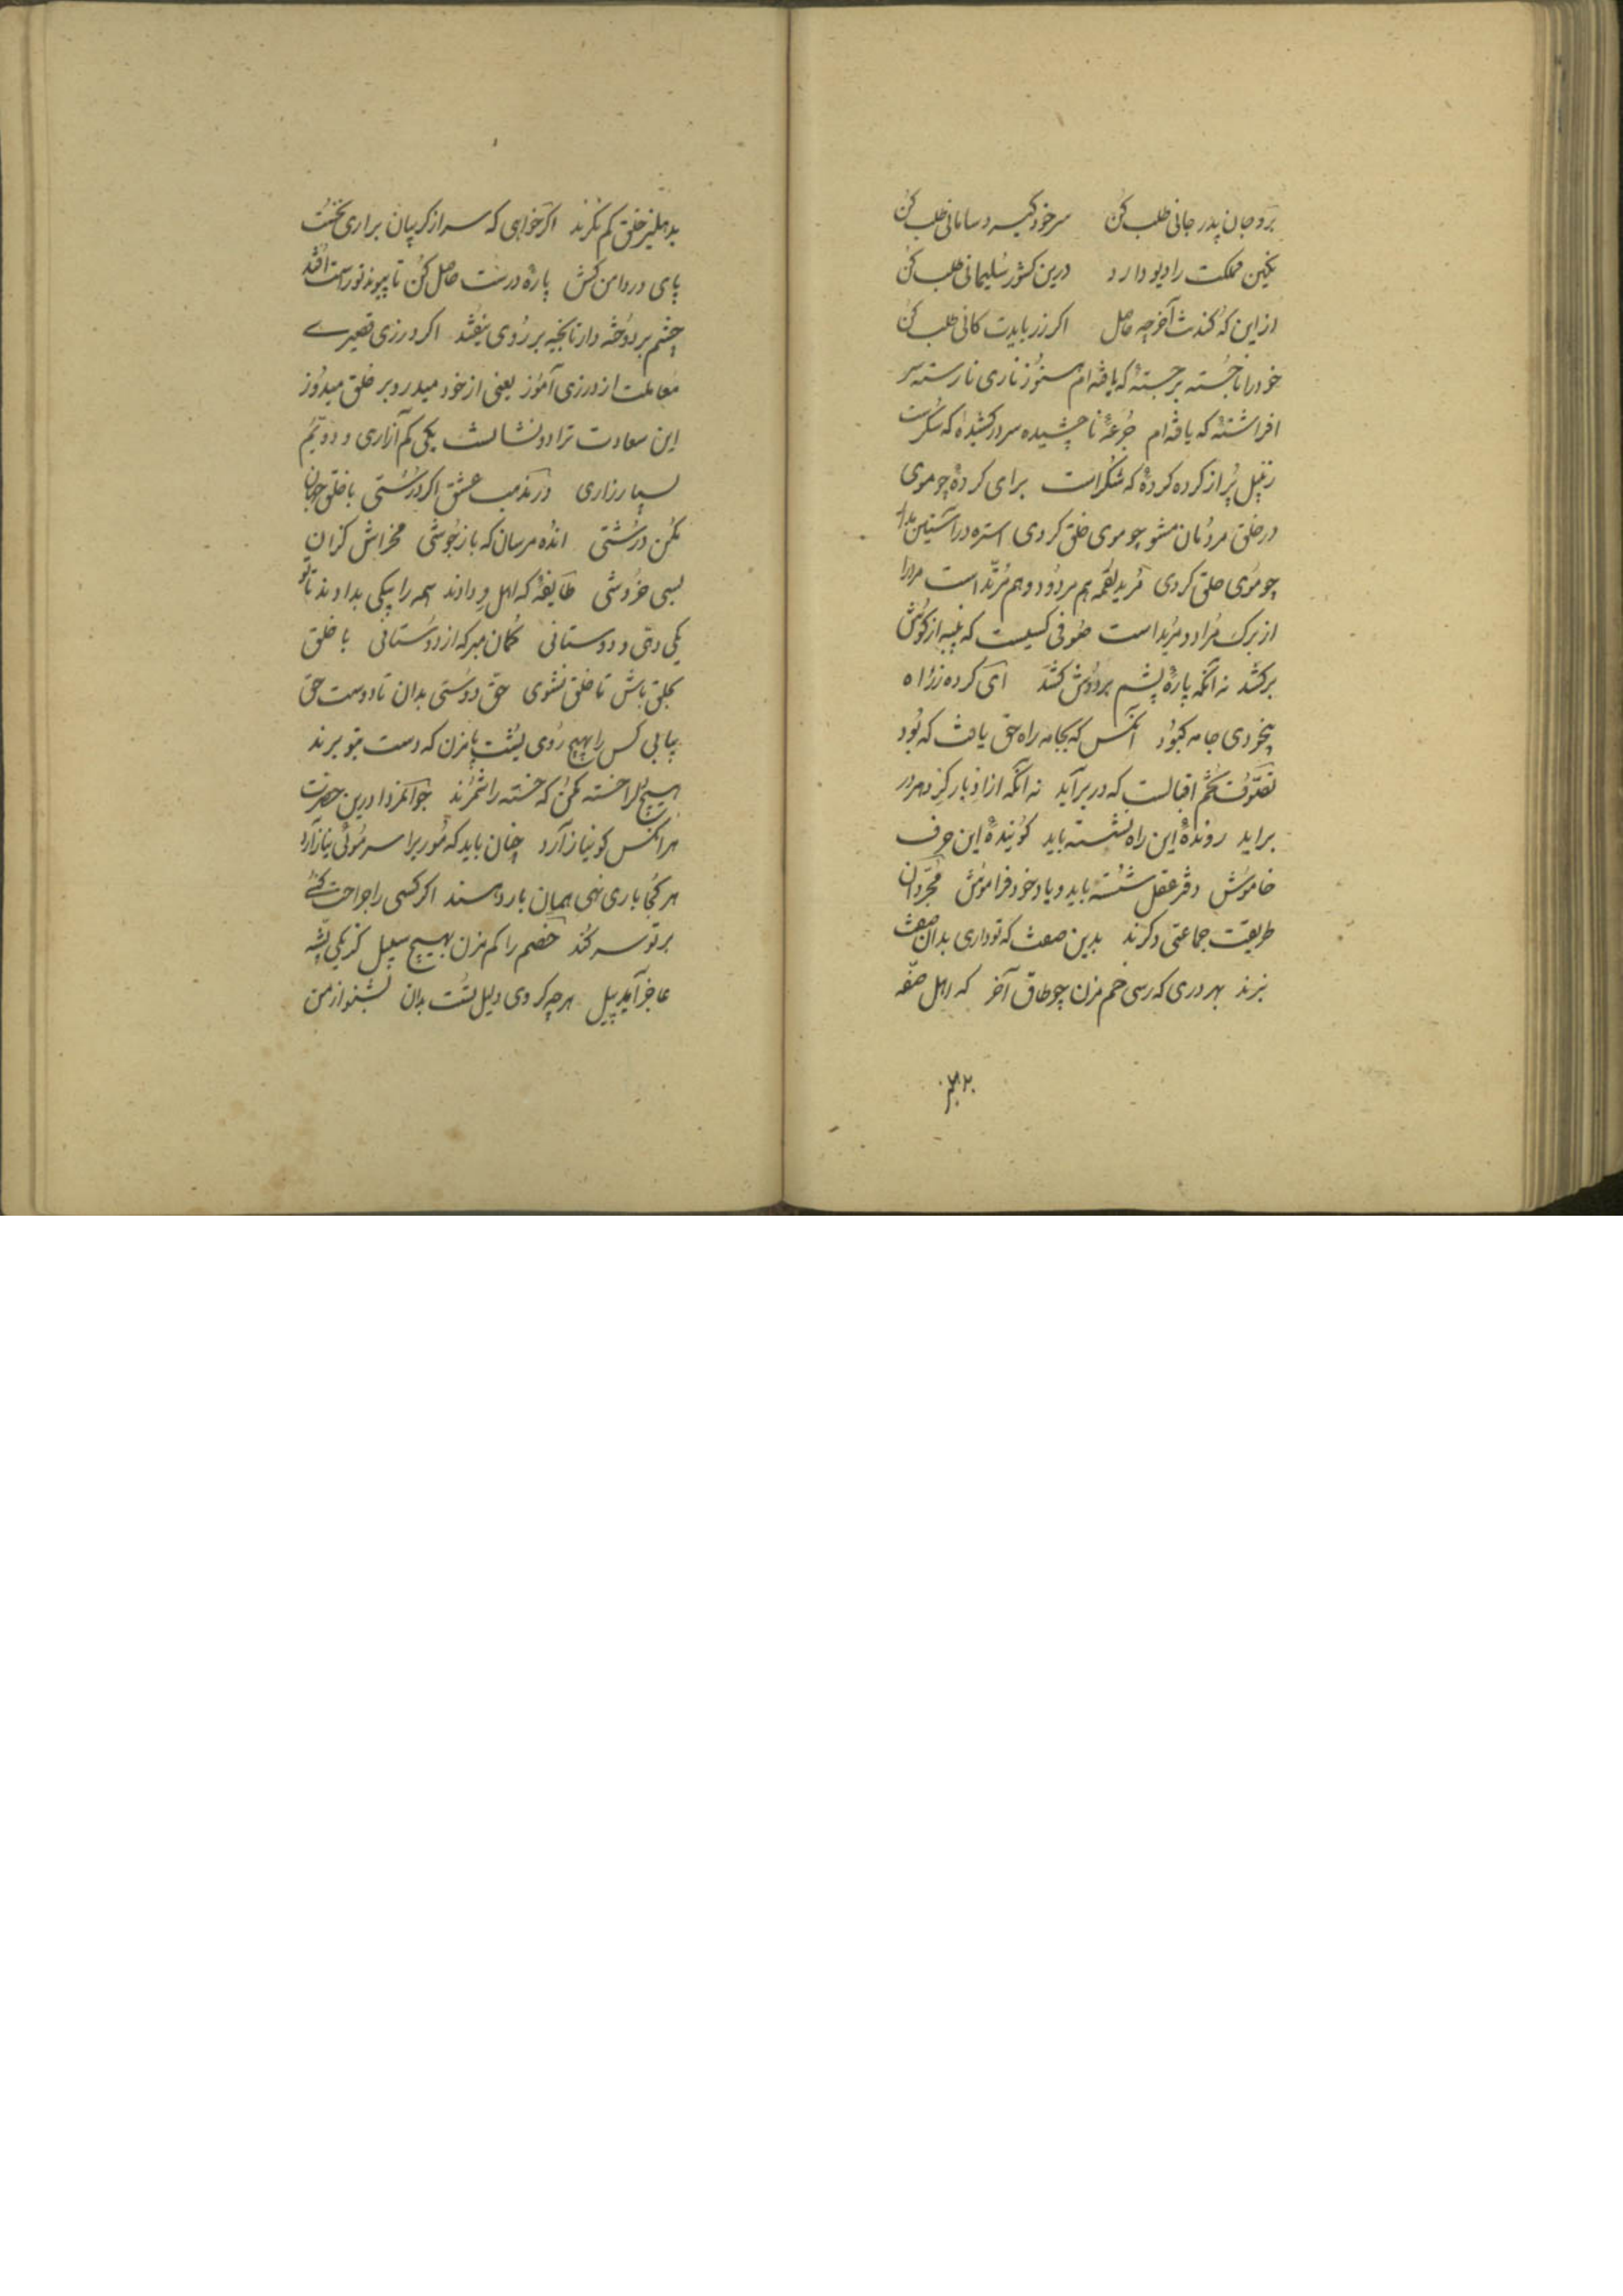 برو جان پدر جانی طلب کن سر خود گیر و سامانی طلب کن
نگین مملکت را دیو دارد درین کشور سلیمانی طلب کن
از این که کندت آخر چه حاصل اکر زر بایدت کانی طلب کن
خود را ناجسته برجستهٔ که یافته‌ام هنوز ناری نارسته سر
افراشتهٔ که یافته‌ام جرعهٔ ناچشیده سر در کشیدهٔ که سکرست
زنبیل پر از کرده کردهٔ که شکراست برای کردهٔ چو موی
در خلق مردمان مشو چو موی خلق کردی استره در آستین
چو موی حلق کردی مرید لقمه هم مردود و هم مرتد است مرد را
از برک مراد و مرید است صوفی کسیست که پنبه از کوش
برکشد نه آنکه پارهٔ پشم بر دوش کشد ای کرده
بخردی جامه کبود آنکس که بجامه راه حق یافت که بود
تصوف تخم اقبالست که در برآید نه آنکه از ادبار
براید روندهٔ این راه نشسته باید کویندهٔ این حرف
خاموش دفتر عقل شسته باید و یاد خود فراموش مجردان
طریقت جماعتی دکرند بدین صفت که تو داری بدان صفت
نبرند بهر دری که رسی خم مزن چو طاق آخر که اهل صفه
۴۲۰
بدهلیز خلق کم نکرند اکر خواهی که سر از کریبان براری نخست
پای در دامن کش پارهٔ درست حاصل کن تا پیوند تو راست افتد
چشم بر دوخته دار تا بخیه بر روی نیفتد اکر درزی
معاملت از درزی آموز یعنی از خود میدر و بر خلق میدوز
این سعادت ترا دو نشانست یکی کم آزاری و دویم
بسیار زاری در مذهب عشق اکر درستی با خلق جهان
مکن درشتی انده مرسان که باز بخوشی مخراش کزان
بسی خروشی طایفهٔ که اهل ودادند همه را بیکی بدادند تا تو
یکی دهی و دوستانی کمان مبر که از دوستانی با خلق
بخلق باش تا خلق نشوی حق دوستی بدان تا دوست حق
بیابی کس را بهیچ روی پشت پا مزن که دست بتو برند
هیچ دل را خسته مکن که خسته را شمرند جوانمردا درین حضرت
هر آنکس کو نیاز آرد چنان باید که موری را سر موئی نیازارد
هر کجا باری نهی همان بار دهند اکر کسی را جراحت کنی
بر تو سر کند خصم را کم مزن بهیچ سبیل کز یکی پشه
عاجز آید پیل هرچه کردی دلیل تست بدان بشنو از من